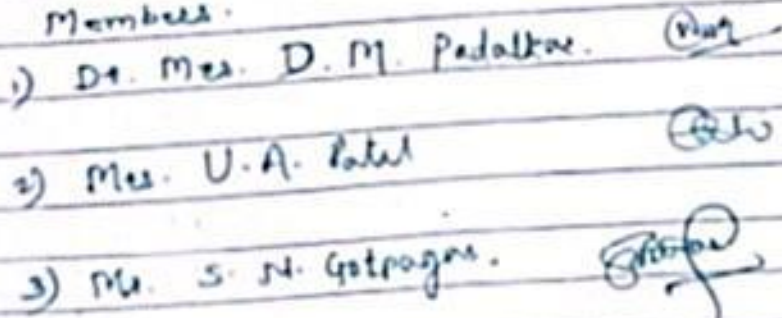 Members.
1) Dr. Mrs. D. M. Padalkar.
2) Mrs. U. A. Patel
3) Mr. S. N. Gotpagar.